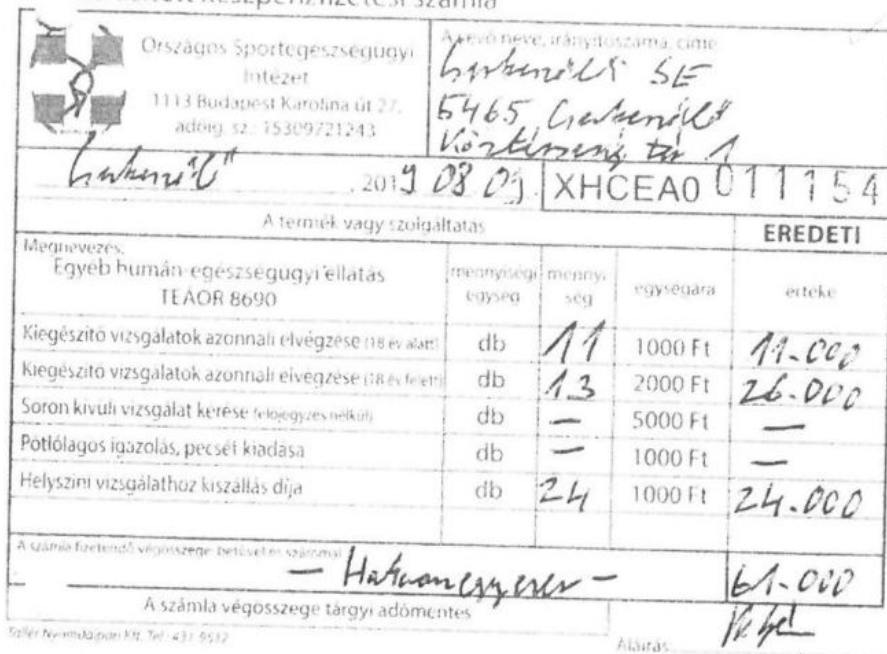 készpénzfizetési számla
Országos Sportegészségügyi
Intézet
1113 Budapest Karolina út 27.
adóig. sz.: 15309721243
A vevő neve, irányítószáma, címe
SE
5465 Cserkeszőlő
Köztársaság tér 1
Cserkeszőlő, 2019 08 09. XHCEA0 011154
A termék vagy szolgáltatás EREDETI
Megnevezés:
Egyéb humán-egészségügyi ellátás
TEÁOR 8690
mennyiségi egység mennyiség egységára értéke
Kiegészítő vizsgálatok azonnali elvégzése (18 év alatt) db 11 1000 Ft 11.000
Kiegészítő vizsgálatok azonnali elvégzése (18 év felett) db 13 2000 Ft 26.000
Soron kívüli vizsgálat kérése (előjegyzés nélkül) db — 5000 Ft —
Pótlólagos igazolás, pecsét kiadása db — 1000 Ft —
Helyszíni vizsgálathoz kiszállás díja db 24 1000 Ft 24.000
A számla fizetendő végösszege betűvel és számmal
— Hatvanegyezer — 61.000
A számla végösszege tárgyi adómentes
Aláírás